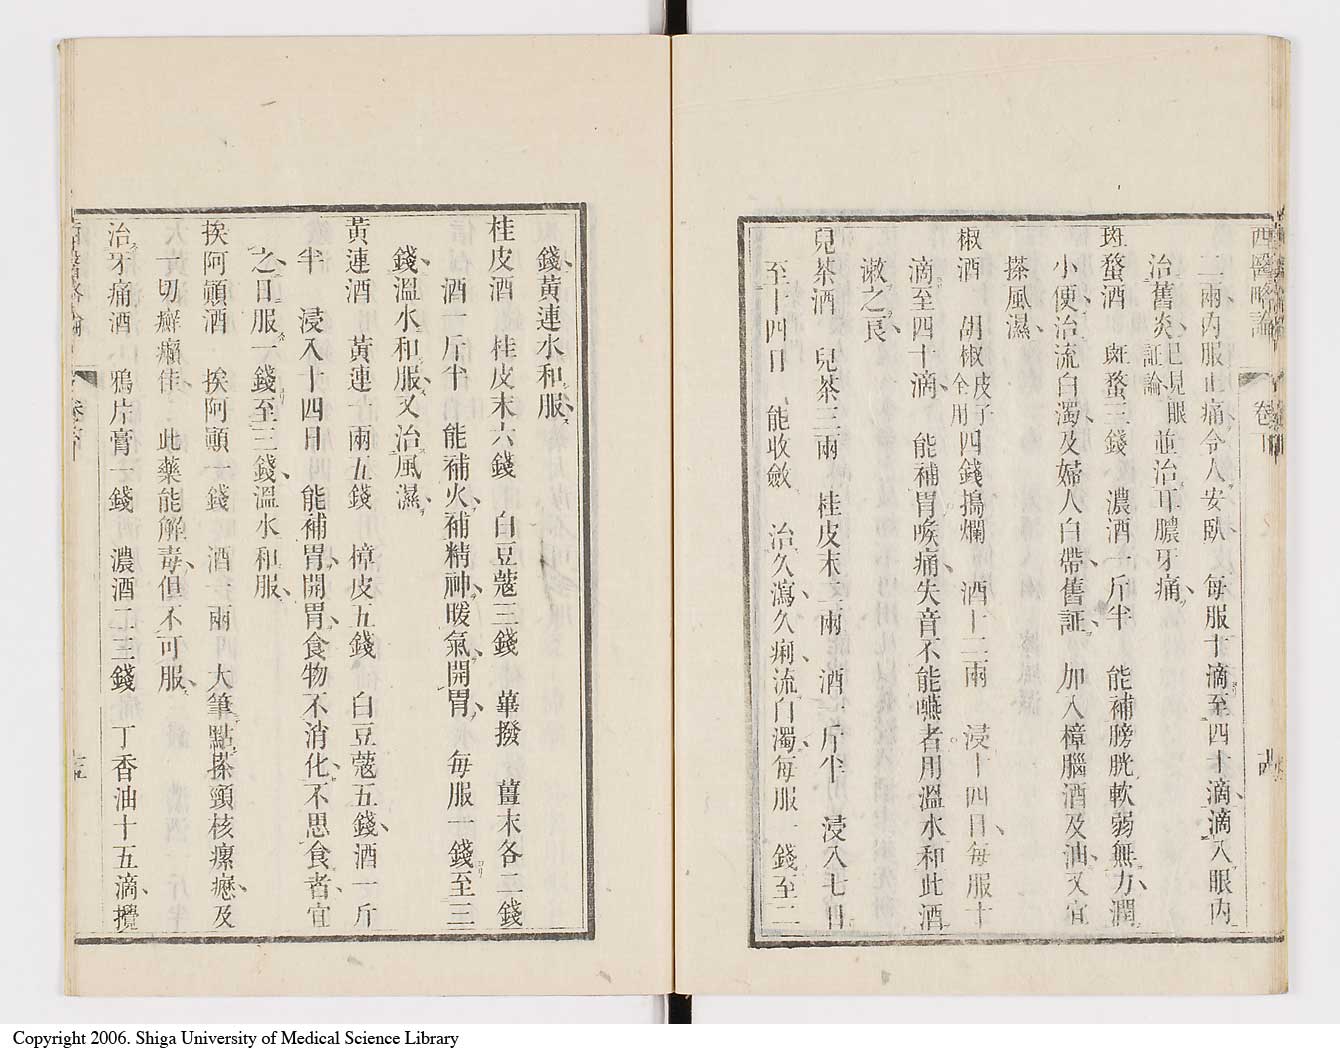 西醫略論 卷下
二兩內服止痛令人安臥 每服十滴至四十滴滴入眼內
治舊炎証論已見眼並治耳膿牙痛
斑蝥酒 斑蝥三錢 濃酒一斤半 能補膀胱軟弱無力潤
小便治流白濁及婦人白帶舊証 加入樟腦酒及油又宜
搽風濕
椒酒 胡椒皮子全用四錢搗爛 酒十二兩 浸十四日每服十
滴至四十滴 能補胃喉痛失音不能嚥者用溫水和此酒
漱之良
兒茶酒 兒茶三兩 桂皮末二兩 酒一斤半 浸入七日
至十四日 能收斂 治久瀉久痢流白濁每服一錢至二
錢黃連水和服
桂皮酒 桂皮末六錢 白豆蔻三錢 蓽撥 薑末各二錢
酒一斤半 能補火補精神暖氣開胃 每服一錢至三
錢溫水和服又治風濕
黃連酒 黃連一兩五錢 樟皮五錢 白豆蔻五錢酒一斤
半 浸入十四日 能補胃開胃食物不消化不思食者宜
之日服一錢至三錢溫水和服
挨阿顚酒 挨阿顚一錢 酒一兩 大筆點搽頸核瘰癧及
一切癬癩佳 此藥能解毒但不可服
治牙痛酒 鴉片膏一錢 濃酒二三錢 丁香油十五滴攪
Copyright 2006. Shiga University of Medical Science Library